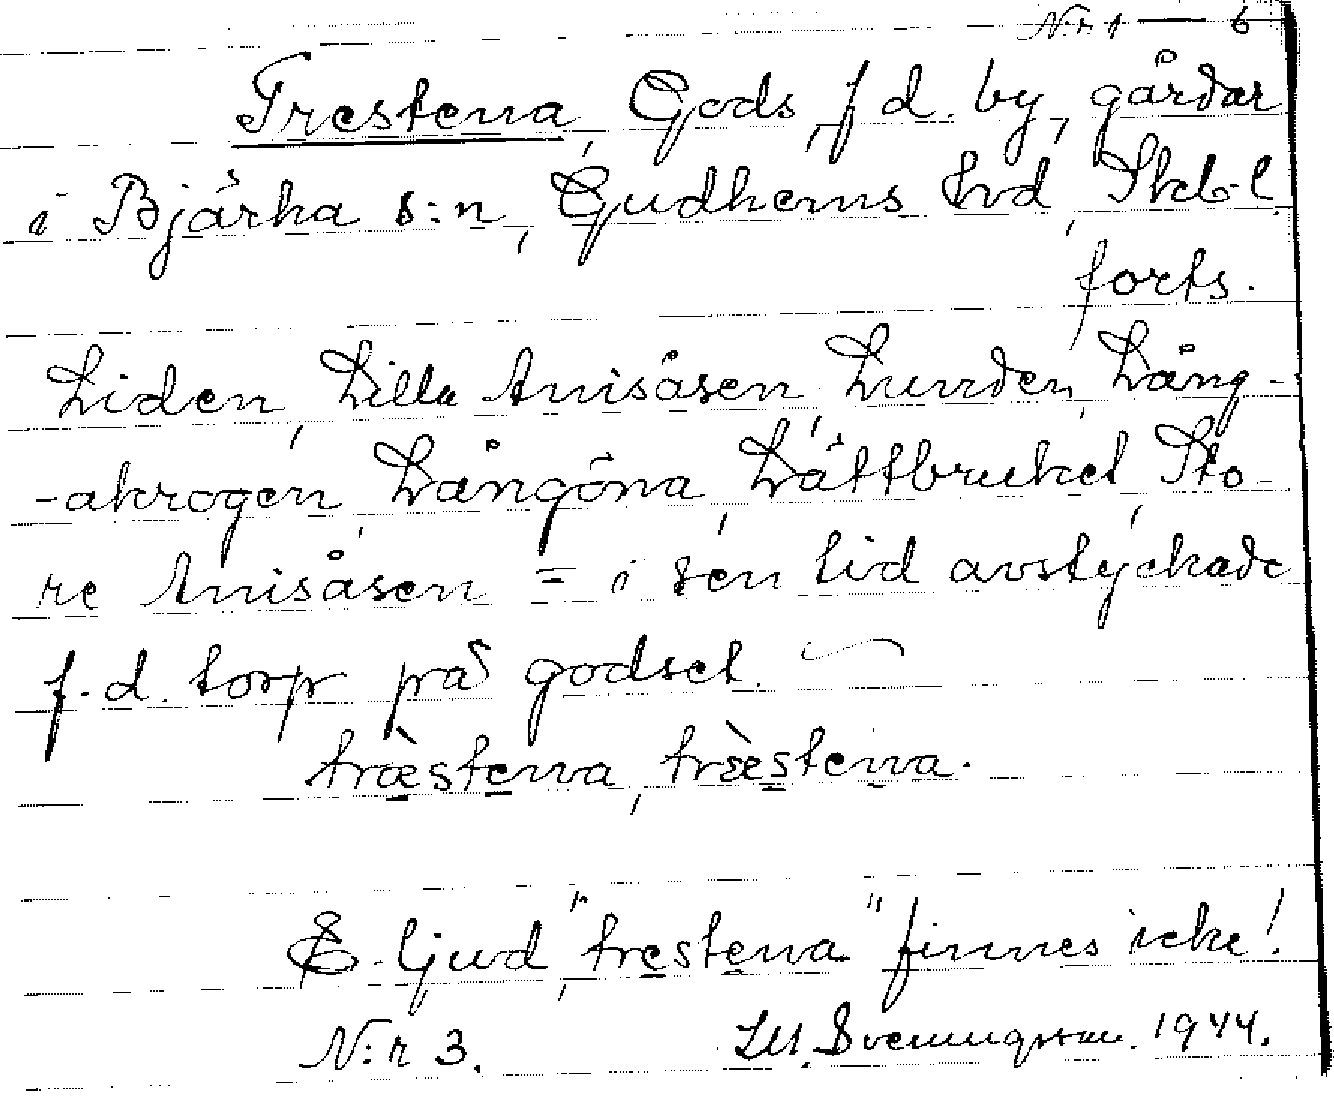 N:r 1 — 6
Trestena, Gods, f d. by, gårdar
i Bjärka s:n, Gudhems hrd, Skb-l.
forts.
Liden, Lilla Anisåsen, Lunden, Lång-
-akrogen, Långöna, Lättbruket, Sto-
re Anisåsen = i sen tid avstyckade
f.d. torp på godset.
træ̀stena, træ̀stena.
E-ljud, "trestena" finnes icke!
N:r 3. Svenungsson. 1944.